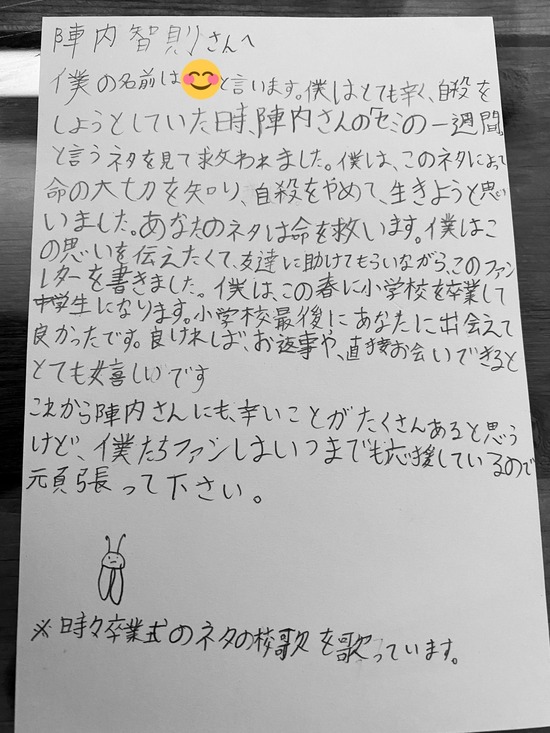 陣内智則さんへ
僕の名前は😊と言います。僕はとても辛く、自殺を
しようとしていた時、陣内さんの「セミの一週間」
と言うネタを見て救われました。僕は、このネタによって
命の大切を知り、自殺をやめて、生きようと思い
いました。あなたのネタは命を救います。僕はこ
の思いを伝えたくて、友達に助けてもらいながら、このファン
レターを書きました。僕は、この春に小学校を卒業して
中学生になります。小学校最後にあなたに出会えて
良かったです。良ければ、お返事や、直接お会いできると
とても嬉しいです
これから陣内さんにも、辛いことがたくさんあると思う
けど、僕たちファンはいつまでも応援しているので
頑張って下さい。
※時々卒業式のネタの校歌を歌っています。